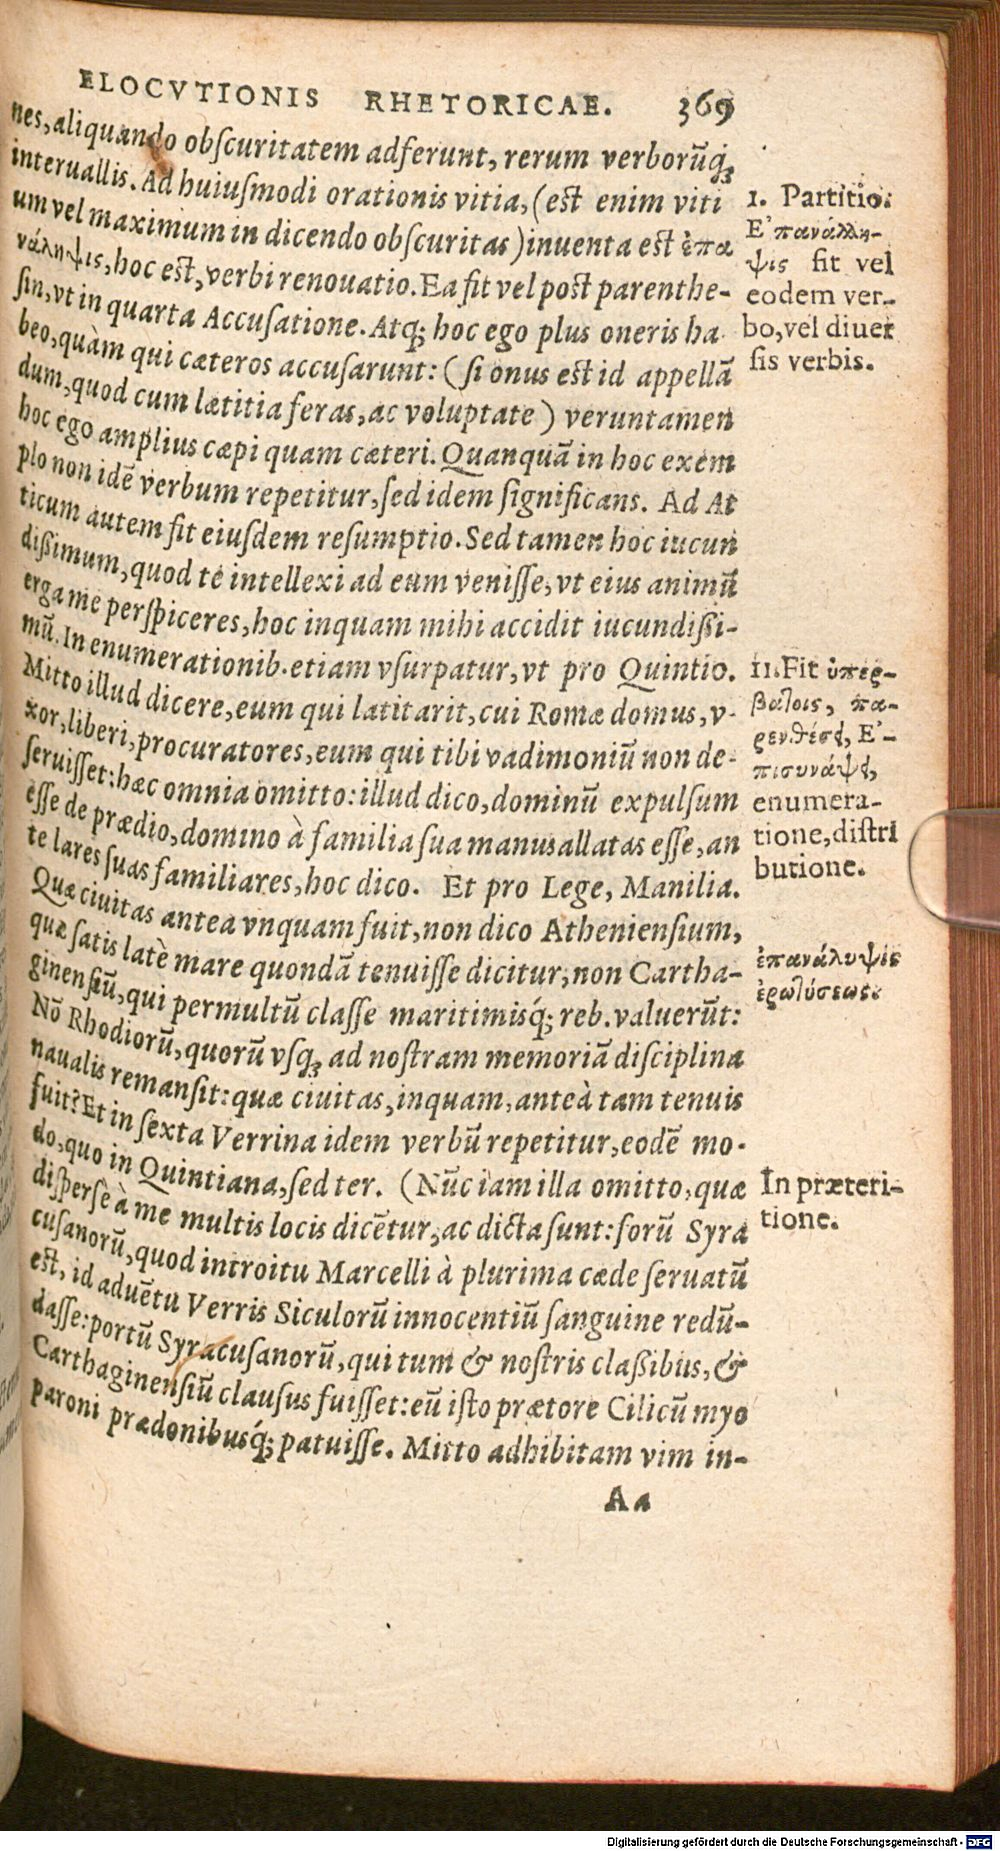 ELOCVTIONIS RHETORICAE. 369
nes, aliquando obſcuritatem adferunt, rerum verborūq́;
interuallis. Ad huiuſmodi orationis vitia, (est enim viti
um vel maximum in dicendo obſcuritas) inuenta est ἐπα
νάληψις, hoc est, verbi renouatio. Ea fit vel post parenthe-
ſin, vt in quarta Accuſatione. Atq; hoc ego plus oneris ha
beo, quàm qui cæteros accuſarunt: (ſi onus est id appellā
dum, quod cum lætitia feras, ac voluptate) veruntamen
hoc ego amplius cæpi quam cæteri. Quanquā in hoc exem
plo non idē verbum repetitur, ſed idem ſignificans. Ad At
ticum autem fit eiuſdem reſumptio. Sed tamen hoc iucun
dißimum, quod te intellexi ad eum veniſſe, vt eius animū
erga me perſpiceres, hoc inquam mihi accidit iucundißi-
mū. In enumerationib. etiam vſurpatur, vt pro Quintio.
Mitto illud dicere, eum qui latitarit, cui Romæ domus, v-
xor, liberi, procuratores, eum qui tibi vadimoniū non de-
ſeruiſſet: hæc omnia omitto: illud dico, dominū expulſum
eſſe de prædio, domino à familia ſua manus allatas eſſe, an
te lares ſuas familiares, hoc dico. Et pro Lege, Manilia.
Quæ ciuitas antea vnquam fuit, non dico Athenienſium,
quæ ſatis latè mare quondā tenuiſſe dicitur, non Cartha-
ginenſiū, qui permultū claſſe maritimisq́; reb. valuerūt:
Nō Rhodiorū, quorū vſq; ad noſtram memoriā diſciplina
naualis remanſit: quæ ciuitas, inquam, anteà tam tenuis
fuit? Et in ſexta Verrina idem verbū repetitur, eodē mo-
do, quo in Quintiana, ſed ter. (Nūc iam illa omitto, quæ
diſperſè à me multis locis dicētur, ac dicta ſunt: forū Syra
cuſanorū, quod introitu Marcelli à plurima cæde ſeruatū
est, id aduētu Verris Siculorū innocentiū ſanguine redū-
daſſe: portū Syracuſanorū, qui tum & noſtris claßibus, &
Carthaginenſiū clauſus fuiſſet: eū iſto prætore Cilicū myo
paroni prædonibusq́; patuiſſe. Mitto adhibitam vim in-
Aa
1. Partitio.
Ε᾿πανάλλη-
ψις fit vel
eodem ver-
bo, vel diuer
ſis verbis.
11. Fit ὑπερ-
βαλοις, πα-
ρενθέσᾳ, Ε᾿-
πισυνάψᾳ,
enumera-
tione, diſtri
butione.
ἐπανάλυψις
ἐρωλύσεως.
In præteri-
tione.
Digitalisierung gefördert durch die Deutsche Forschungsgemeinschaft - DFG